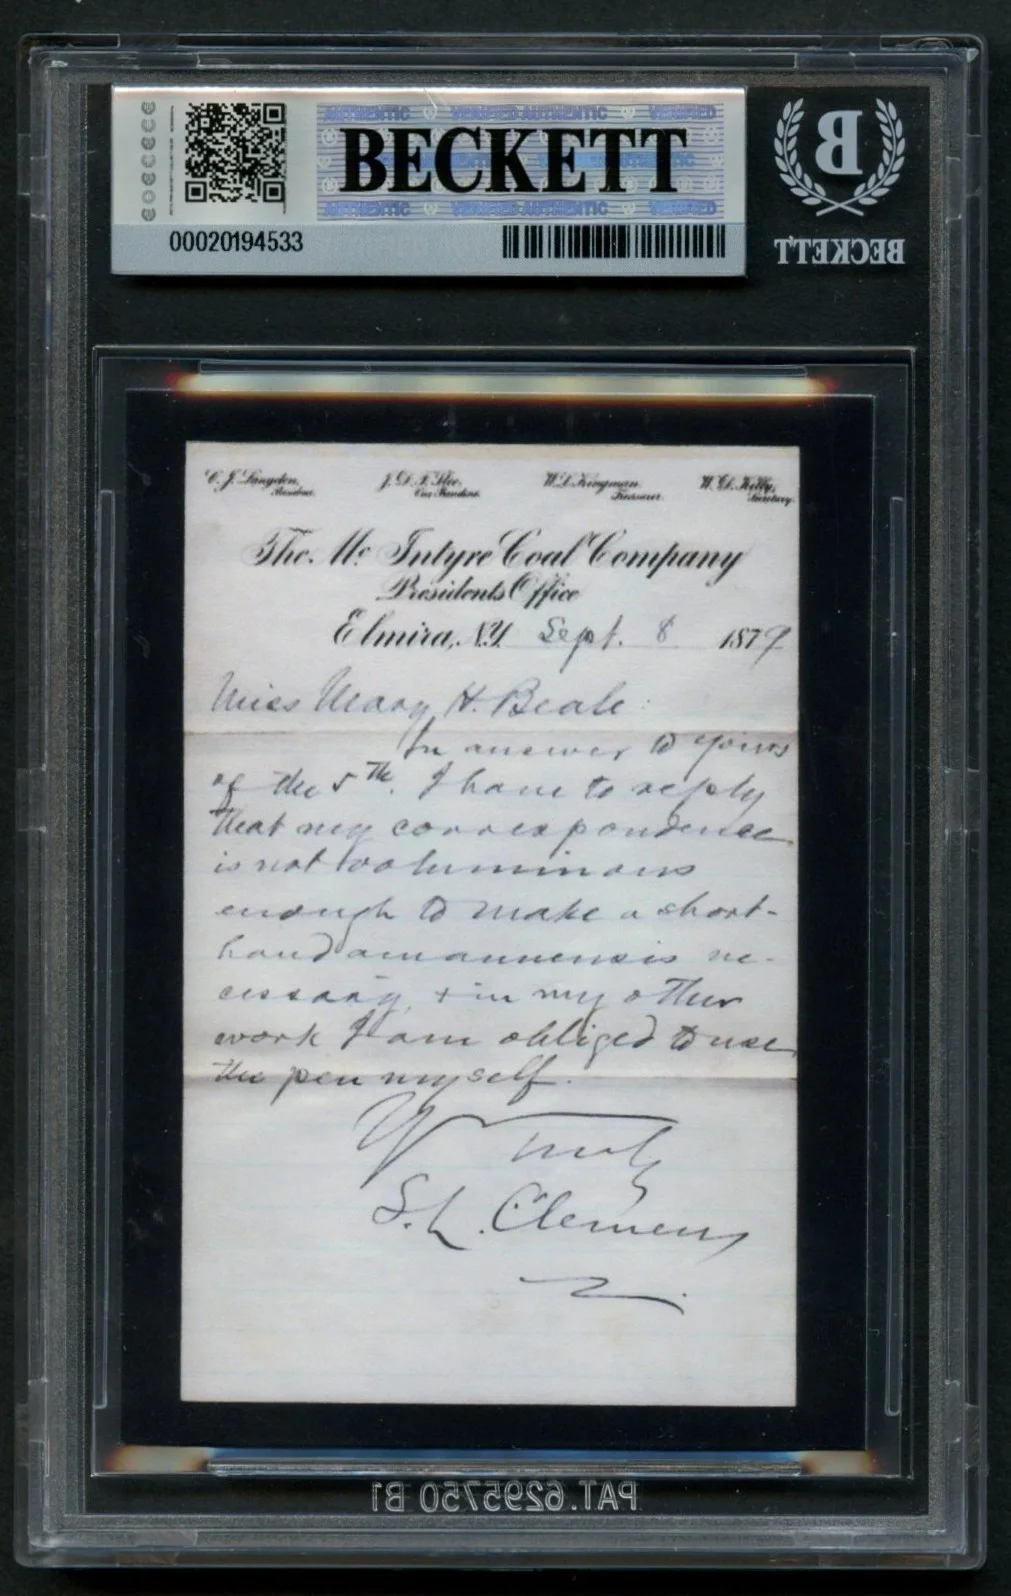 AUTHENTIC VERIFIED AUTHENTIC VERIFIED
BECKETT
AUTHENTIC VERIFIED AUTHENTIC VERIFIED
00020194533
B
BECKETT
C. J. Langdon, President.
J. D. F. Slee, Vice President.
W. L. Kingman, Treasurer.
W. D. Kelly, Secretary.
The Mc Intyre Coal Company
Presidents Office
Elmira, N.Y. Sept. 8 1879
Miss Mary H. Beale:
In answer to yours
of the 5th. I have to reply
that my correspondence
is not voluminous
enough to make a short-
hand amanuensis ne-
cessary, & in my other
work I am obliged to use
the pen myself.
Yrs Truly
S. L. Clemens
PAT. 6295750 B1